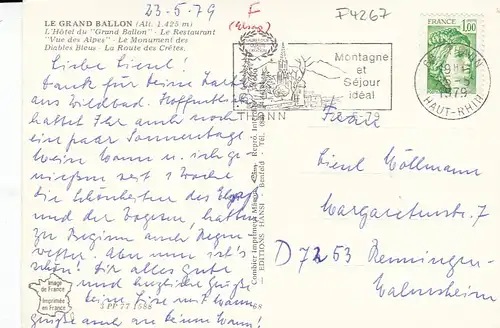 23-5.79
F
(Elsass)
F4267
LE GRAND BALLON (Alt. 1.425 m)
L'Hôtel du "Grand Ballon" - Le Restaurant
"Vue des Alpes" - Le Monument des
Diables Bleus - La Route des Crêtes.
Liebe Liesel!
Dank für deine Karte
aus Wildbad. Hoffentlich
hattet Ihr auch noch
ein paar Sonnentage.
Mein Mann u. ich ge-
nießen seit 1 Woche
die Schönheiten des Elsaß
und der Vogesen, hatten
zu Beginn auch Regen-
wetter. Aber nun ist's
schön! Dir alles gute
und herzliche Grüße
deine Lise mit Mann
Grüße auch an deinen Mann!
Image
de France
Imprimée
en France
3 PP 77 1588
68
Combier Imprimeur Mâcon
EDITIONS HANSI - Benfeld
THANN
Montagne
et
Séjour
idéal
FRANCE
1,00
1979
HAUT-RHIN
Frau
Liesel Wöllmann
Margaretenstr. 7
D 7253 Renningen-
Malmsheim